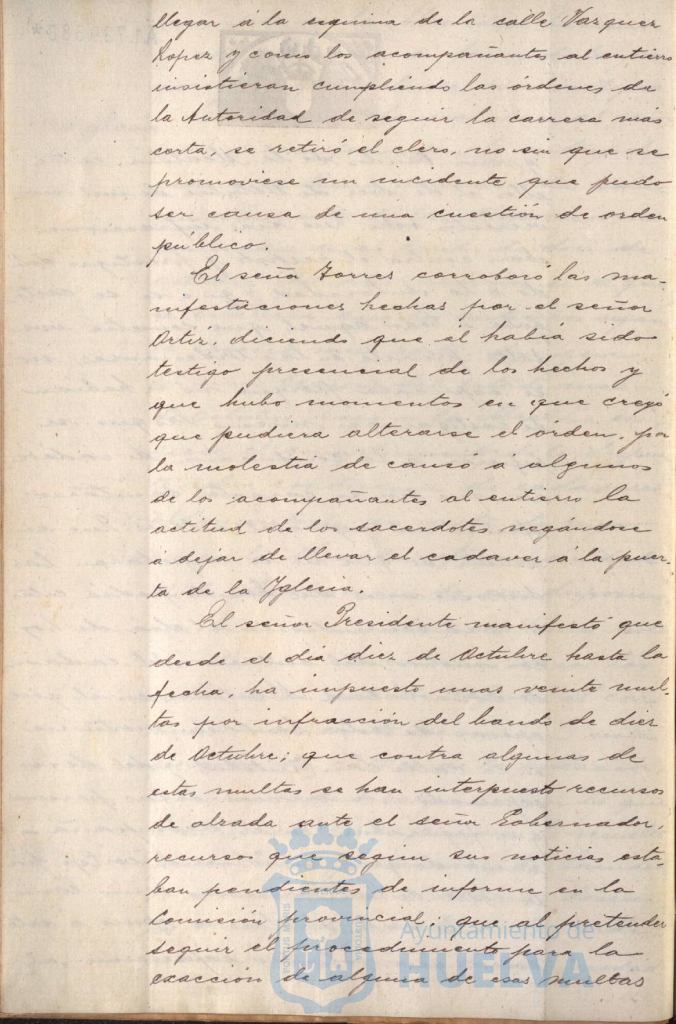 llegar á la esquina de la calle Vazquez
Lopez y como los acompañantes al entierro
insistieran cumpliendo las órdenes de
la Autoridad de seguir la carrera más
corta, se retiró el clero, no sin que se
promoviese un incidente que pudo
ser causa de una cuestión de orden
público.
El señor Torres corroboró las ma-
nifestaciones hechas por el señor
Ortiz, diciendo que él había sido
testigo presencial de los hechos y
que hubo momentos en que creyó
que pudiera alterarse el órden, por
la molestia de causó á algunos
de los acompañantes al entierro la
actitud de los sacerdotes negándose
á dejar de llevar el cadaver á la puer-
ta de la Iglesia.
El señor Presidente manifestó que
desde el día diez de Octubre hasta la
fecha, ha impuesto unas veinte mul-
tas por infracción del bando de diez
de Octubre; que contra algunas de
estas multas se han interpuesto recursos
de alzada ante el señor Gobernador,
recursos que segun sus noticias esta-
ban pendientes de informe en la
Comisión provincial; que al pretender
seguir el procedimiento para la
exacción de alguna de esas multas
Ayuntamiento de
HUELVA